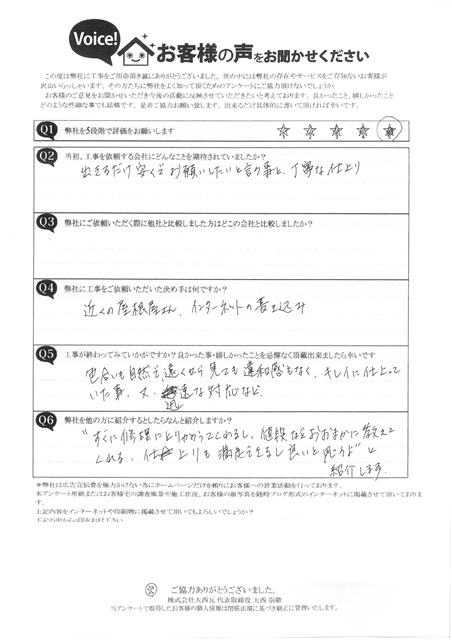 Voice!
お客様の声をお聞かせください
この度は弊社に工事をご用命頂き誠にありがとうございました。世の中には弊社の存在やサービスをご存知ないお客様が
沢山いらっしゃいます。その方たちに弊社をよく知って頂くためのアンケートにご協力頂けないでしょうか。
お客様のご意見をお聞かせいただき今後の活動に反映させていただきたいと考えております。良かったこと、嬉しかったこと
どのような些細な事でも結構です。是非ご協力お願い致します。出来るだけ具体的に書いて頂ければ幸いです。
Q1 弊社を5段階で評価をお願いします
Q2 当初、工事を依頼する会社にどんなことを期待されていましたか?
出きるだけ安くでお願いしたいと言う事と、丁寧な仕上り
Q3 弊社にご依頼いただく際に他社と比較しました方はどこの会社と比較しましたか?
Q4 弊社に工事をご依頼いただいた決め手は何ですか?
近くの屋根屋さん、インターネットの書き込み
Q5 工事が終わってみていかがですか?良かった事・嬉しかったことを忌憚なく頂戴出来ましたら幸いです
色合いも自然で、遠くから見ても違和感もなく、キレイに仕上って
いた事。又、迅速な対応など。
Q6 弊社を他の方に紹介するとしたらなんと紹介しますか?
"すぐに修理に上りかかってくれるし、値段などおおまかに教えて
くれる、仕上りも満足できるし良いと思うよ"と
紹介します。
※弊社は広告宣伝費を極力かけない為にホームページだけを頼りにお客様への営業活動を行っております。
本アンケート用紙またはお客様宅の調査風景や施工状況、お客様の顔写真を随時ブログ形式のインターネットに掲載させて頂いております。
上記内容をインターネットや印刷物に掲載させて頂いてもよろしいでしょうか?
ご協力ありがとうございました。
株式会社大西瓦 代表取締役 大西 崇敬
当アンケートで取得したお客様の個人情報は関係法規に基づき厳正に管理いたします。